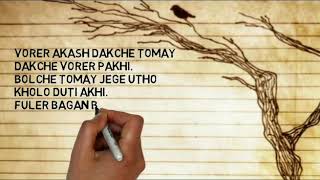 VORER AKASH DAKCHE TOMAY
DAKCHE VORER PAKHI.
BOLCHE TOMAY JEGE UTHO
KHOLO DUTI AKHI.
FULER BAGAN B